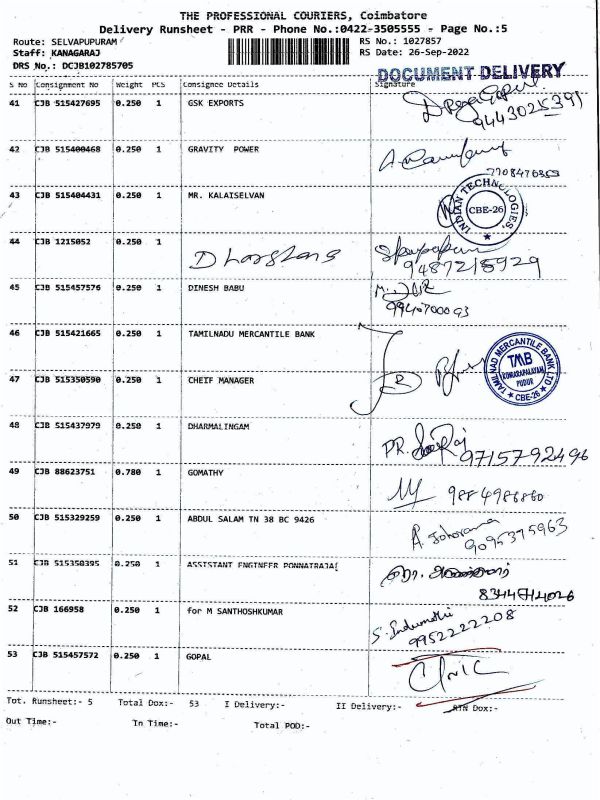 THE PROFESSIONAL COURIERS, Coimbatore
Delivery Runsheet - PRR - Phone No.:0422-3505555 - Page No.:5
Route: SELVAPUPURAM RS No.: 1027857
Staff: KANAGARAJ RS Date: 26-Sep-2022
DRS No.: DCJB102785705
DOCUMENT DELIVERY
S No Consignment No Weight PCS Consignee Details Signature
41 CJB 515427695 0.250 1 GSK EXPORTS
42 CJB 515400468 0.250 1 GRAVITY POWER
43 CJB 515404431 0.250 1 MR. KALAISELVAN
INDIAN TECHNOLOGIES, CBE-26
44 CJB 1215052 0.250 1
45 CJB 515457576 0.250 1 DINESH BABU
46 CJB 515421665 0.250 1 TAMILNADU MERCANTILE BANK
TAMILNAD MERCANTILE BANK LTD TMB KUMARAPALAYAM PUDUR CBE-26
47 CJB 515350590 0.250 1 CHEIF MANAGER
48 CJB 515437979 0.250 1 DHARMALINGAM
9715792496
49 CJB 88623751 0.780 1 GOMATHY
9884986860
50 CJB 515329259 0.250 1 ABDUL SALAM TN 38 BC 9426
9095375963
51 CJB 515350395 0.250 1 ASSISTANT ENGINEER PONNATRAJA[
52 CJB 166958 0.250 1 for M SANTHOSHKUMAR
S. Indumathi
9952222208
53 CJB 515457572 0.250 1 GOPAL
Tot. Runsheet:- 5 Total Dox:- 53 I Delivery:- II Delivery:- RTN Dox:-
Out Time:- In Time:- Total POD:-